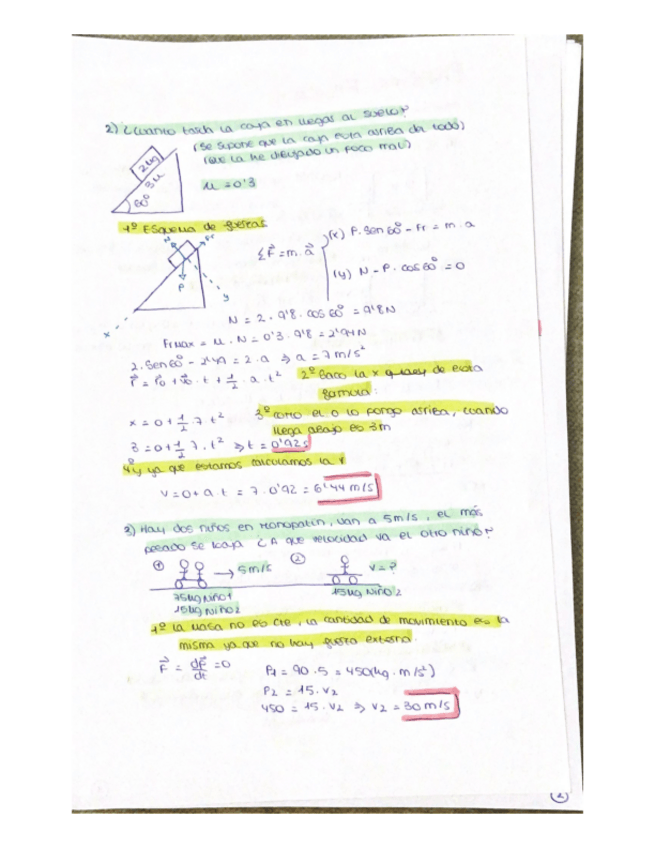 2) ¿Cuanto tarda la caja en llegar al suelo?
(se supone que la caja esta arriba del todo)
(que la he dibujado un poco mal)
2kg
3m
60°
μ = 0'3
1º Esquema de fuerzas
N Fr
P
x y
ΣF = m.a
(x) P. Sen 60° - Fr = m. a
(y) N - P. cos 60° = 0
N = 2 . 9'8 . cos 60° = 9'8N
Frmax = μ . N = 0'3 . 9'8 = 2'94N
2. Sen 60° - 2'49 = 2. a ⇒ a = 7 m/s²
r = r0 + v0 . t + 1/2 . a. t²
2º Saco la x y la y de esta
formula:
x = 0 + 1/2 7 t²
3º como el 0 lo pongo arriba, cuando
llega abajo es 3m
3 = 0 + 1/2 7. t² ⇒ t = 0'92s
4º y ya que estamos calculamos la v
v = 0 + a . t = 7 . 0'92 = 6'44 m/s
3) Hay dos niños en monopatin, van a 5m/s, el más
pesado se baja ¿A que velocidad va el otro niño?
1 → 5m/s
2 v = ?
75kg Niño 1
15kg Niño 2
15kg Niño 2
1º La masa no es cte, la cantidad de movimiento es la
misma ya que no hay fuerza externa.
F = dP/dt = 0
P1 = 90 . 5 = 450 (kg . m/s²)
P2 = 15 . v2
450 = 15 . v2 ⇒ v2 = 30 m/s
2